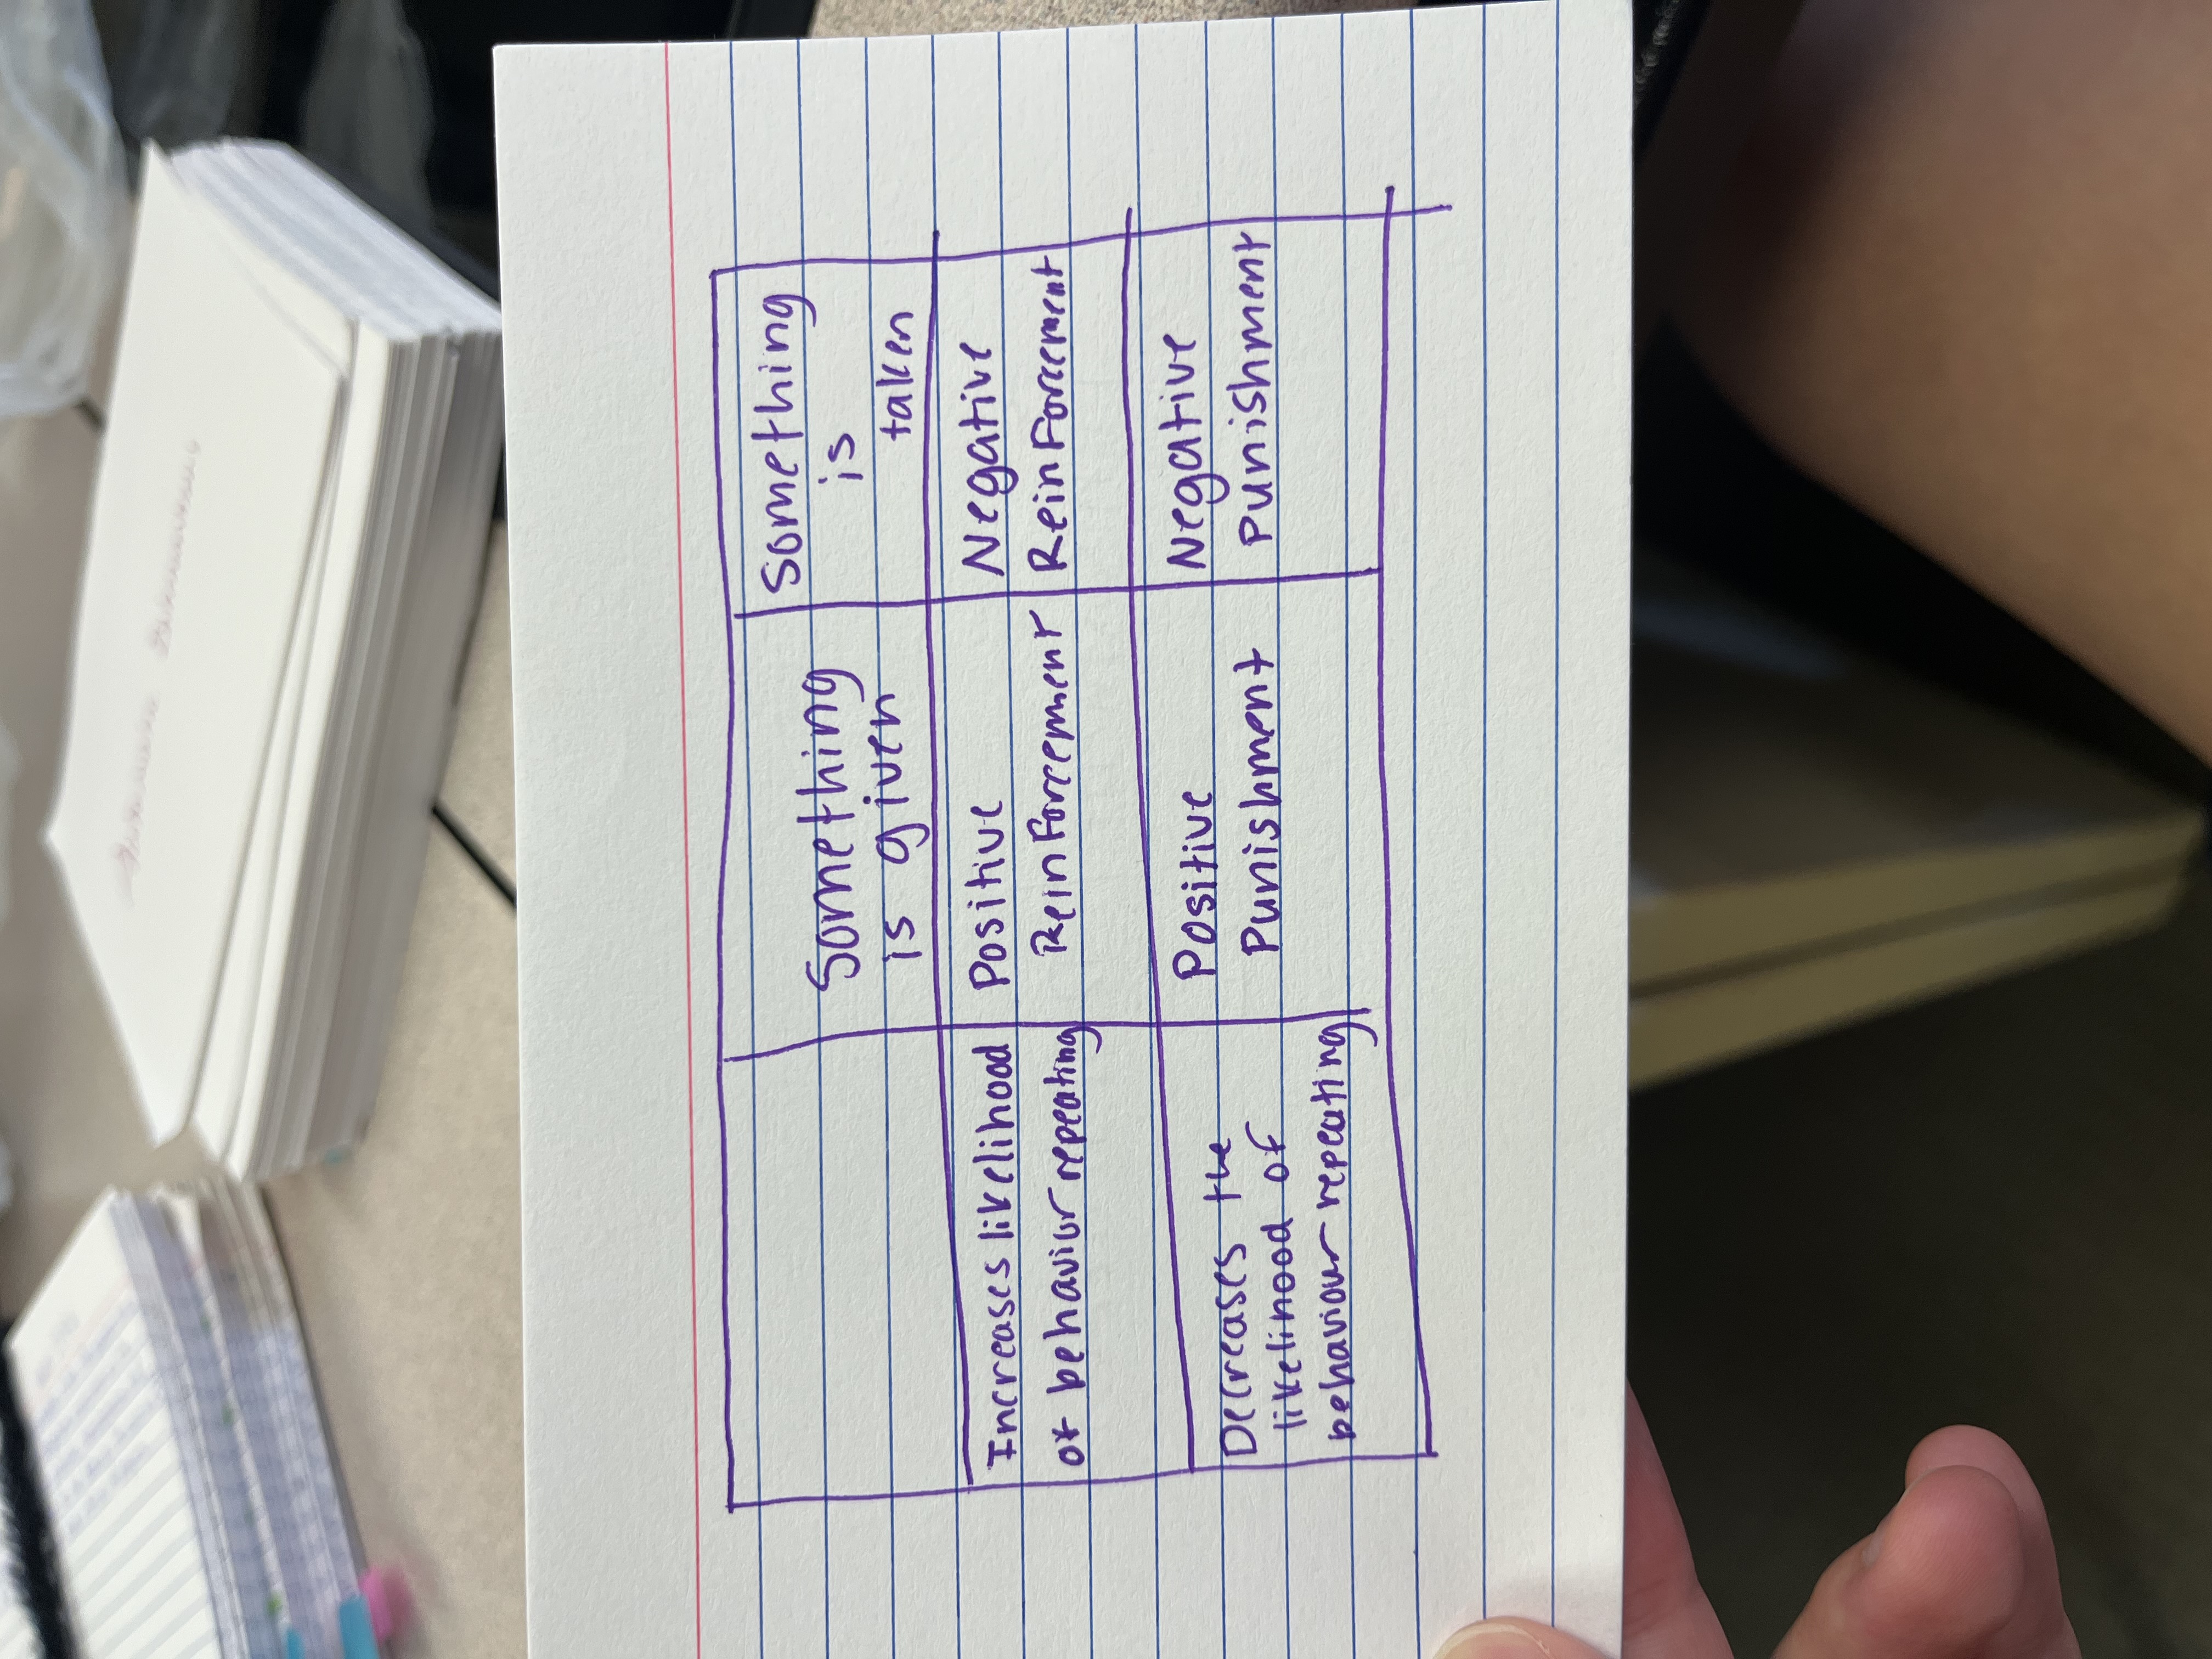 Something
is given
Something
is
taken
Increases likelihood
of behaviour repeating
Positive
Reinforcement
Negative
Reinforcement
Decreases the
likelihood of
behaviour repeating
Positive
Punishment
Negative
Punishment